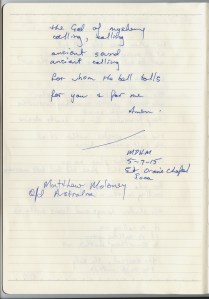 the God of mystery
calling, calling
ancient sound
ancient calling
for whom the bell tolls
for you & for me
Amen.
MPHM
5-7-15
St Oran's Chapel
Iona
Matthew Moloney
Australia